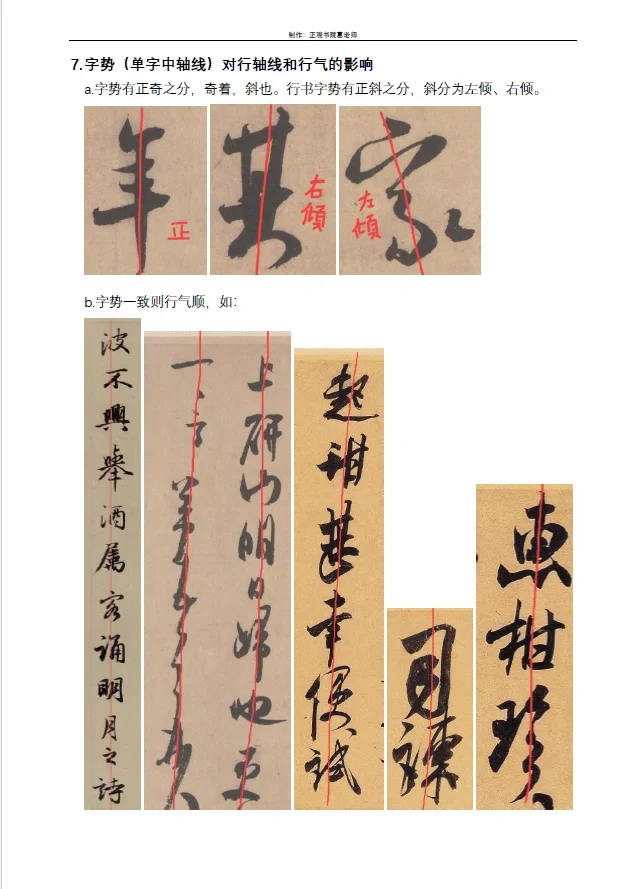 制作：正观书院墓老师
7.字势（单字中轴线）对行轴线和行气的影响
a.字势有正奇之分，奇着，斜也。行书字势有正斜之分，斜分为左倾、右倾。
年
正
其
右傾
家
左傾
b.字势一致则行气顺，如：
波不興舉酒属客诵明月之詩
上研山明日歸也更
起甜甚幸便試